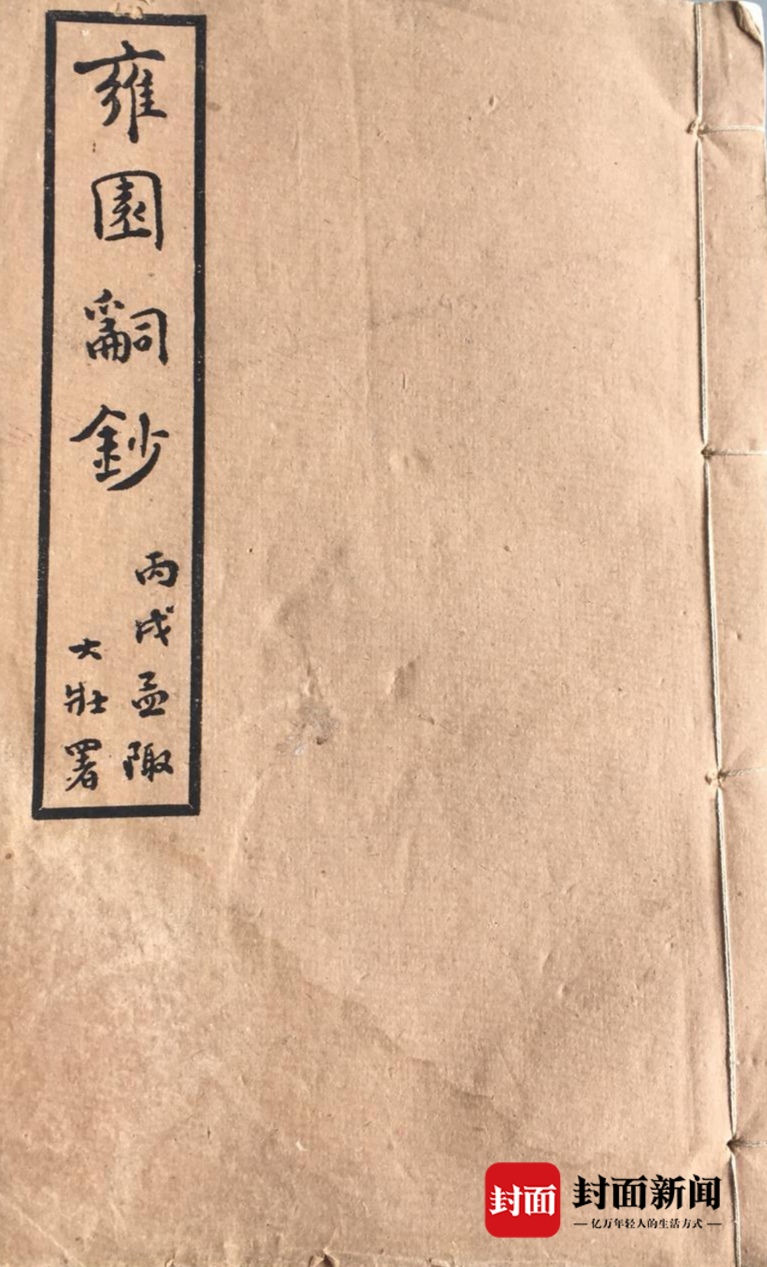 雍園詞鈔
丙戌孟陬
大壯署
封面
封面新闻
亿万年轻人的生活方式